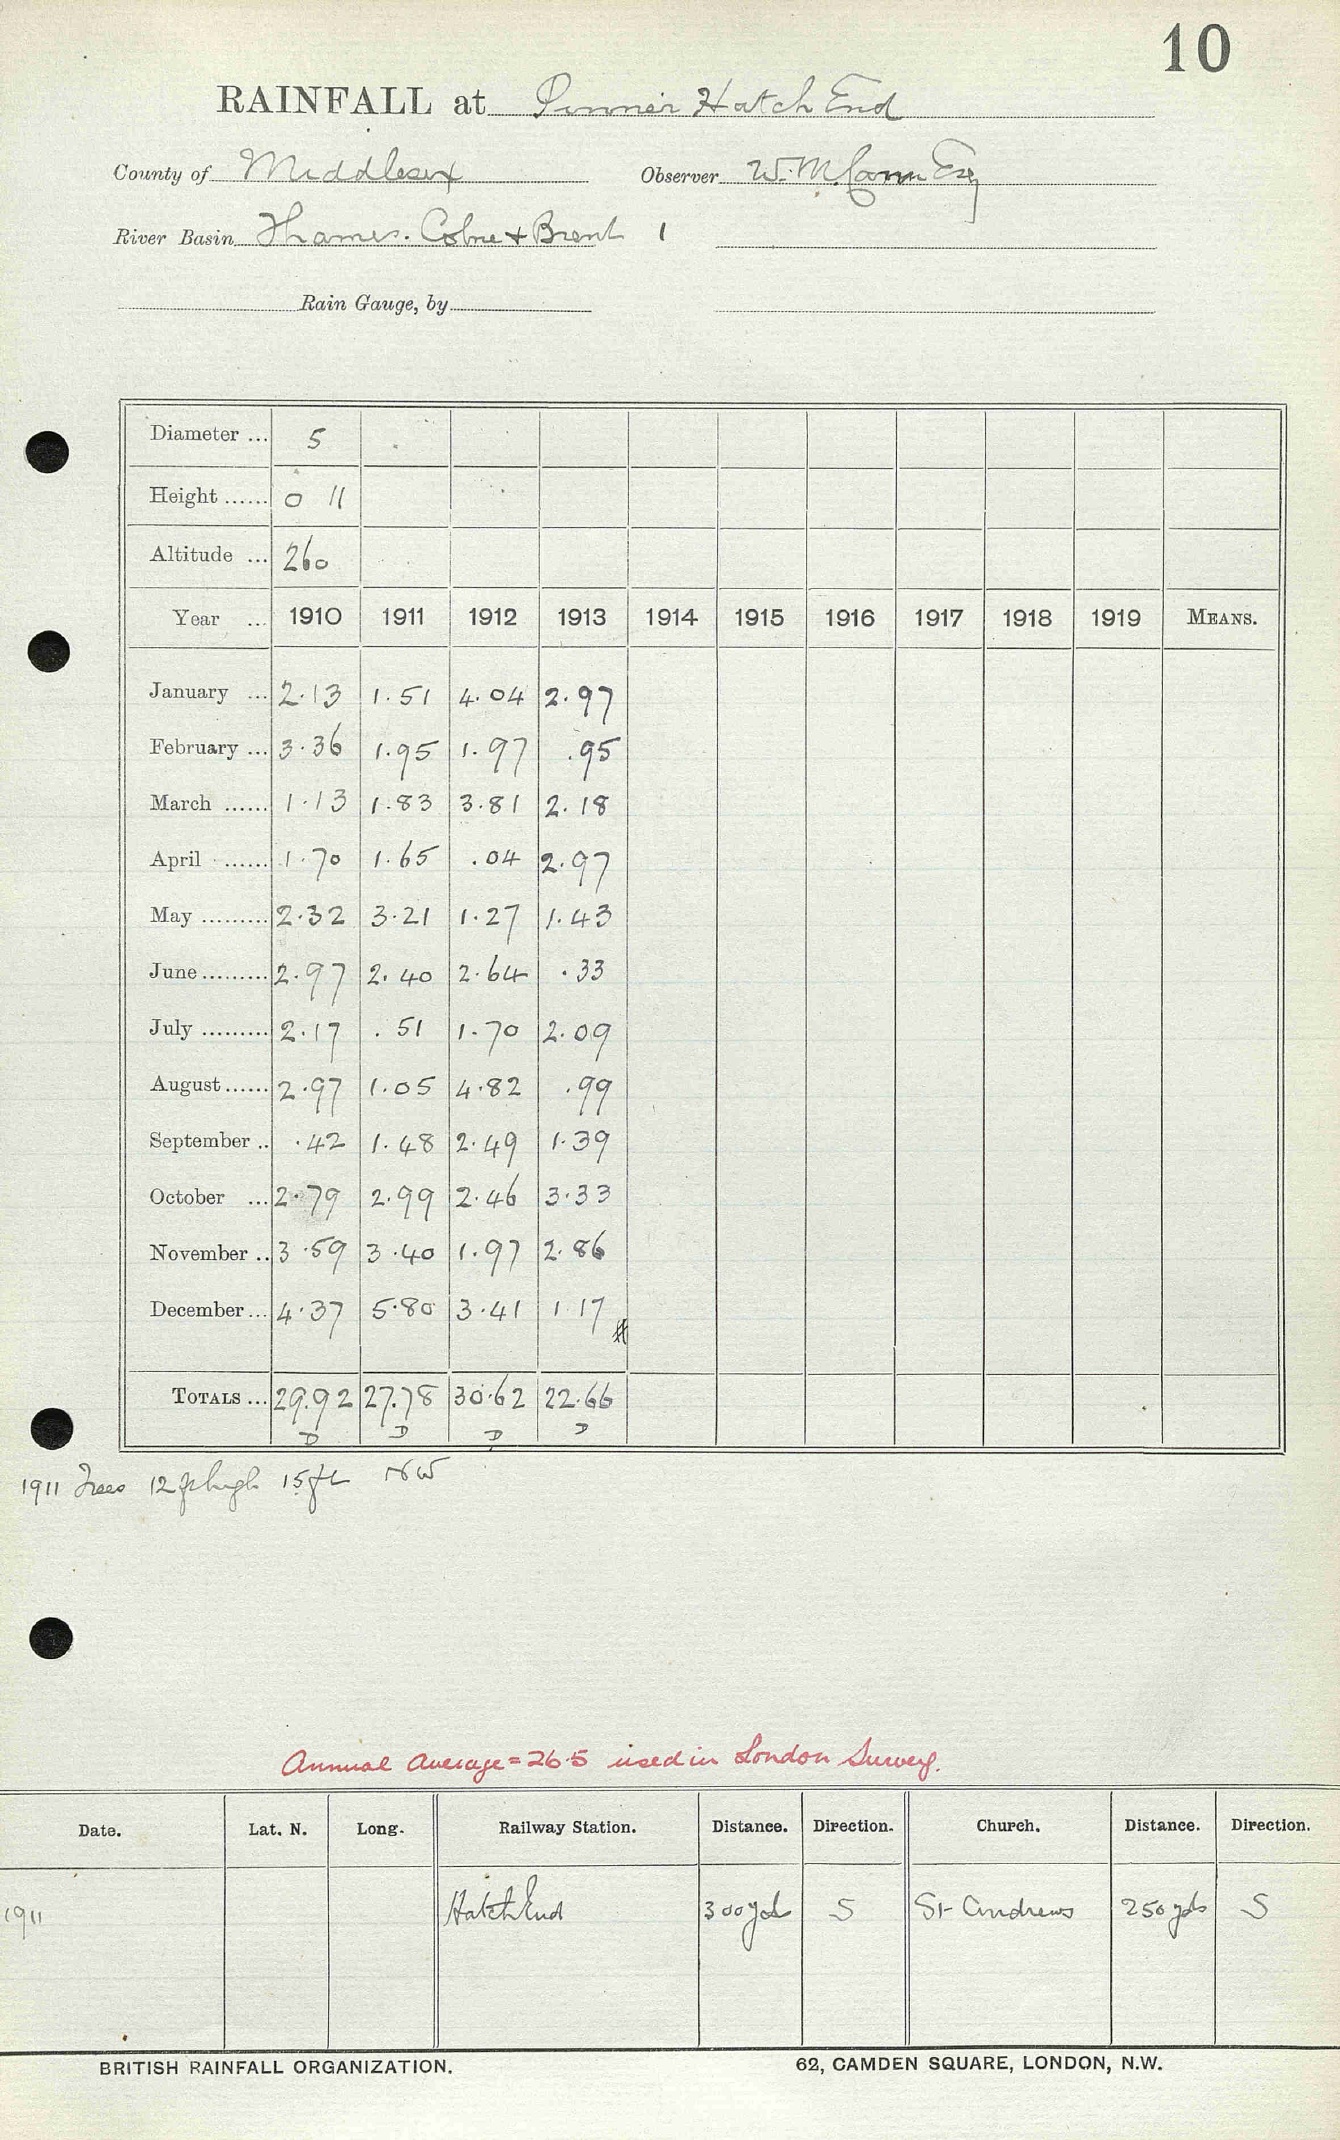 10
RAINFALL at Pinner Hatch End
County of Middlesex Observer W. McCann Esq
River Basin Thames. Colne + Brent 1
Rain Gauge, by
Diameter ... 5
Height ...... 0 11
Altitude ... 260
Year ... 1910 1911 1912 1913 1914 1915 1916 1917 1918 1919 MEANS.
January ... 2.13 1.51 4.04 2.97
February ... 3.36 1.95 1.97 .95
March ...... 1.13 1.83 3.81 2.18
April ...... 1.70 1.65 .04 2.97
May ......... 2.32 3.21 1.27 1.43
June ......... 2.97 2.40 2.64 .33
July ......... 2.17 .51 1.70 2.09
August ...... 2.97 1.05 4.82 .99
September .. .42 1.48 2.49 1.39
October ... 2.79 2.99 2.46 3.33
November .. 3.59 3.40 1.97 2.86
December ... 4.37 5.80 3.41 1.17
TOTALS ... 29.92 27.78 30.62 22.66
D D D D
1911 Trees 12 ft high 15 ft NW
Annual Average = 26.5 used in London Survey.
Date. Lat. N. Long. Railway Station. Distance. Direction. Church. Distance. Direction.
1911 Hatch End 300 yds S St Andrews 250 yds S
BRITISH RAINFALL ORGANIZATION. 62, CAMDEN SQUARE, LONDON, N.W.